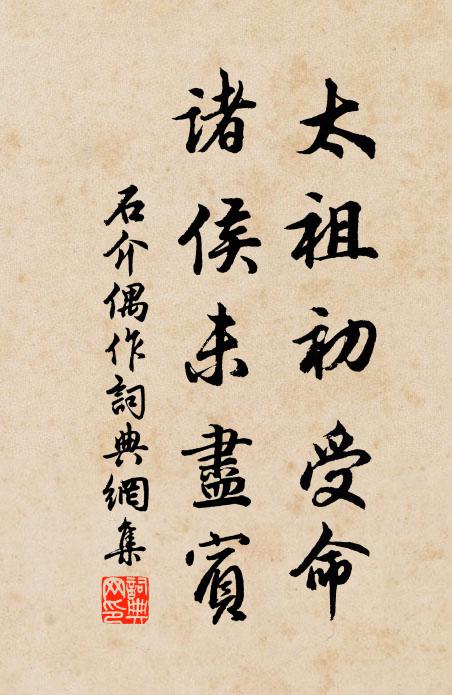 太祖初受命
诸侯未盡賓
石介偶作詞典網集
詞典网印